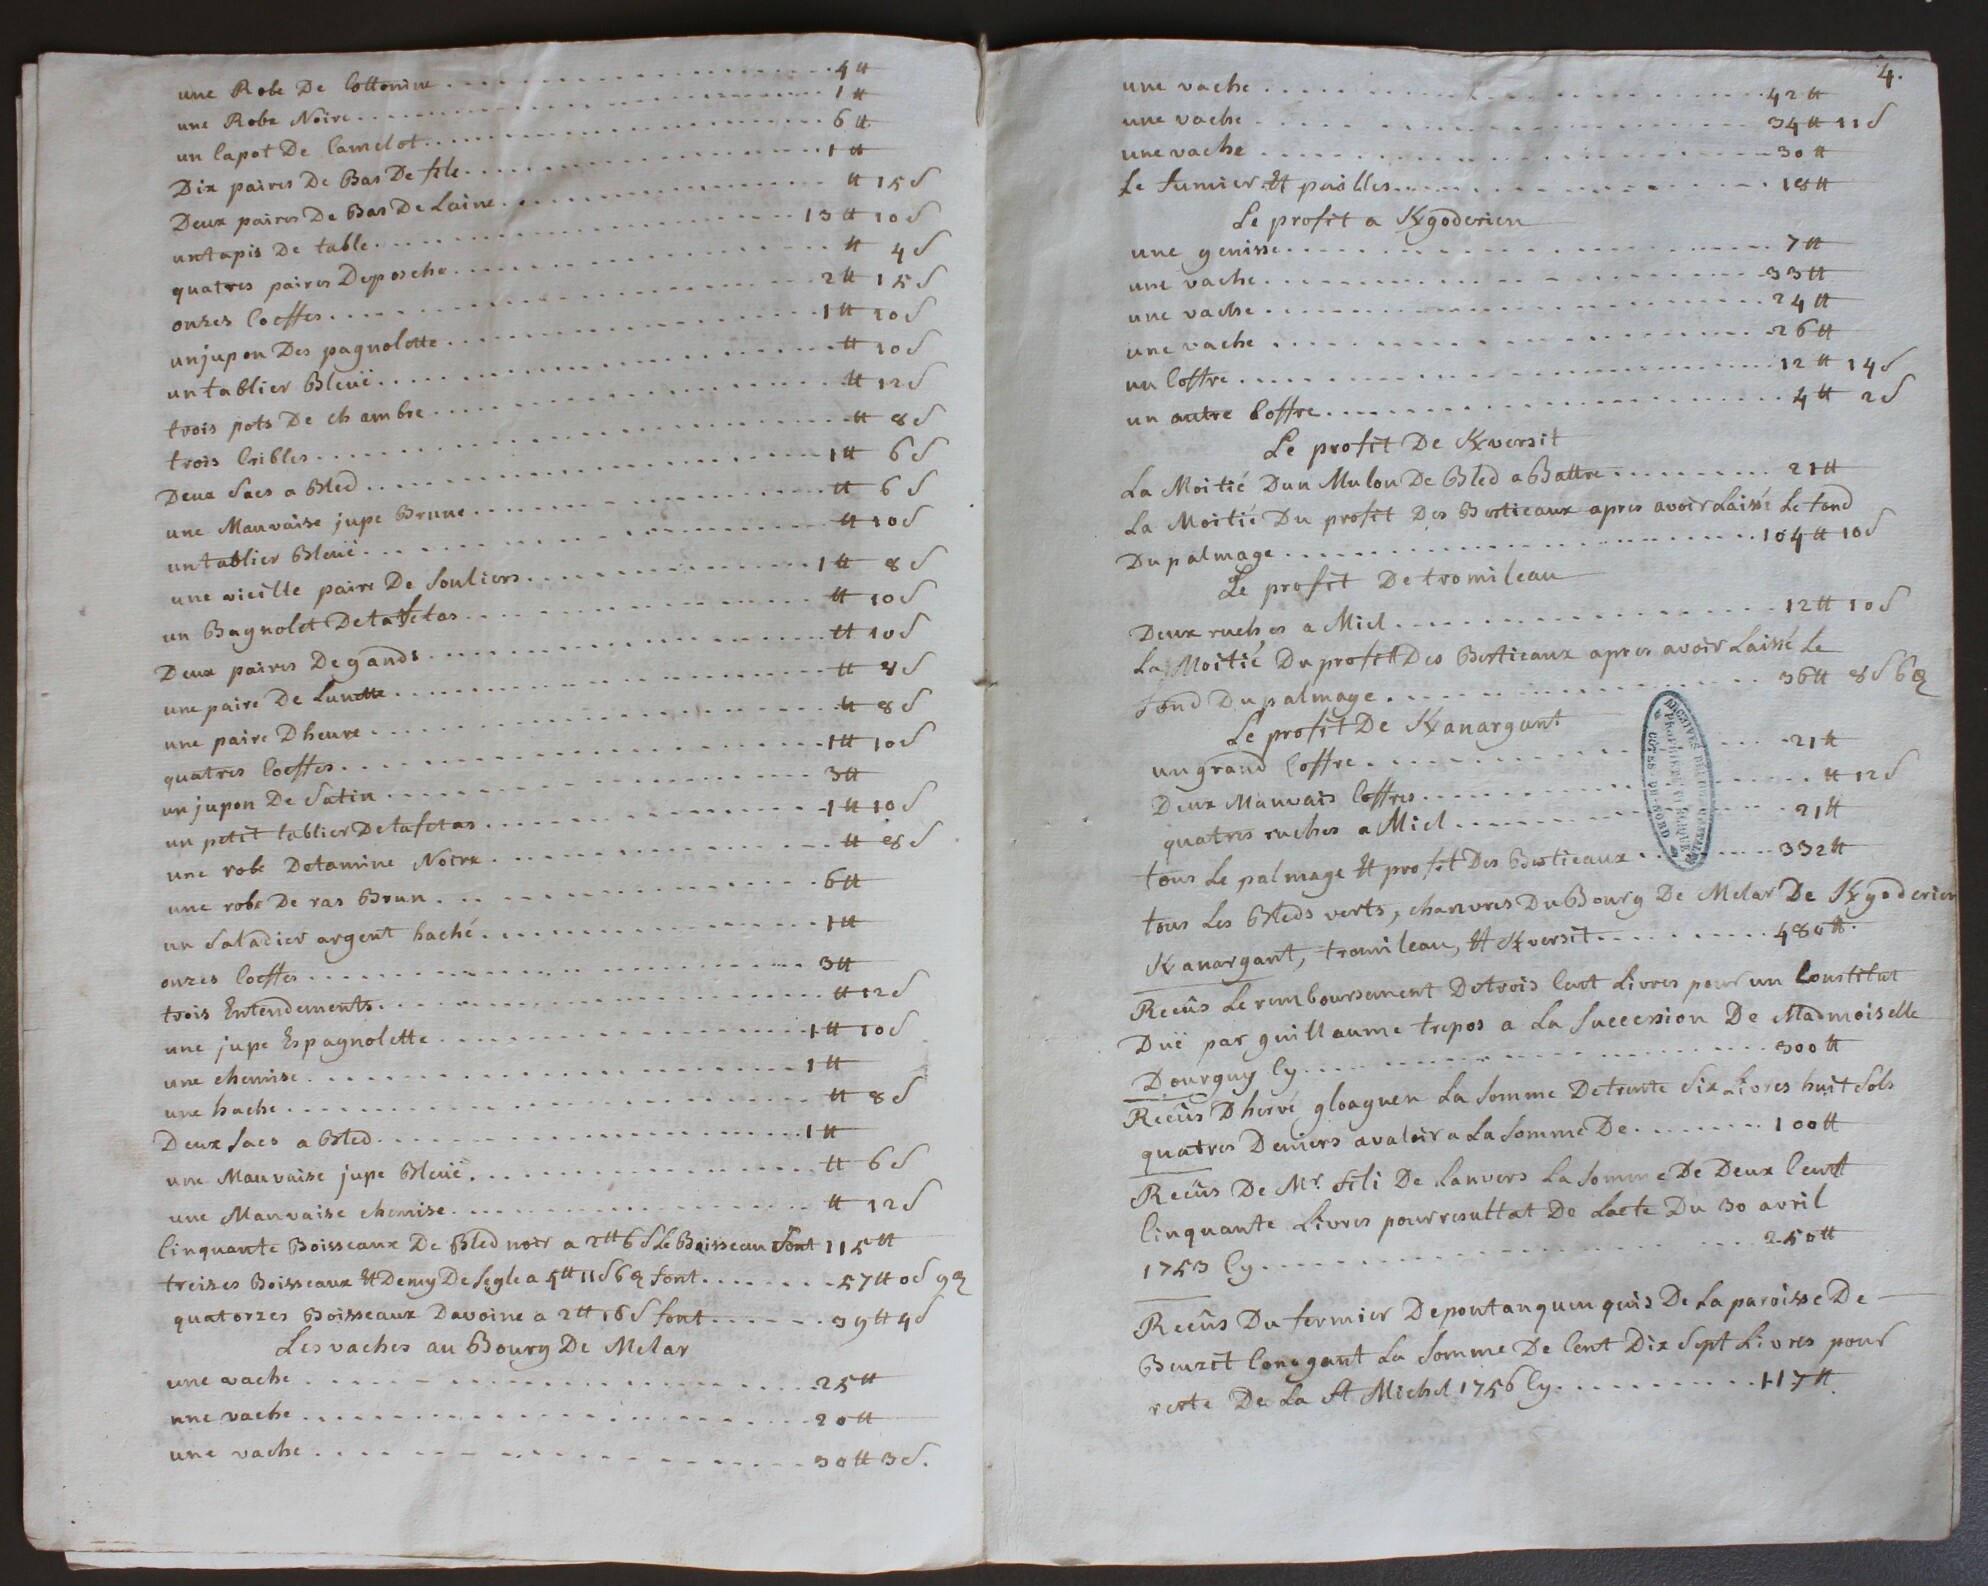 une Robe De Cottonine 4 tt
une Robe Noire 1 tt
un Capot De Camelot 6 tt
Dix paires De Bas De file 1 tt
Deux paires De Bas De Laine tt 15 S
un tapis De table 13 tt 10 S
quatres paires De posche tt 4 S
onzes Coeffes 2 tt 15 S
un jupon Des pagnolette 1 tt 10 S
un tablier Bleuë tt 10 S
trois pots De chambre tt 12 S
trois Cribles tt 8 S
Deux Sacs a Bled 1 tt 6 S
une Mauvaise jupe Brune tt 6 S
un tablier Bleuë tt 10 S
une vieille paire De Souliers 1 tt 8 S
un Bagnolet De tafetas tt 10 S
Deux paires De gands tt 10 S
une paire De Lunette tt 8 S
une paire Dheure tt 8 S
quatres Coeffes 1 tt 10 S
un jupon De Satin 3 tt
un petit tablier De tafetas 1 tt 10 S
une robe Detamine Noire tt 8 S
une robe De ras Brun 6 tt
un Saladier argent haché 1 tt
onzes Coeffes 3 tt
trois Entendements tt 12 S
une jupe Espagnolette 1 tt 10 S
une chemise 1 tt
une hache tt 8 S
Deux Sacs a Bled 1 tt
une Mauvaise jupe Bleuë tt 6 S
une Mauvaise chemise tt 12 S
Cinquante Boisseaux De Bled noir a 2 tt 6 S Le Boisseau font 115 tt
treizes Boisseaux Et Demy De Segle a 4 tt 11 S 6 d font 57 tt 0 S 9 d
quatorzes Boisseaux Davoine a 2 tt 16 S font 39 tt 4 S
Les vaches au Bourg De Melar
une vache 25 tt
une vache 20 tt
une vache 30 tt 3 S.
4.
une vache 42 tt
une vache 34 tt 11 S
une vache 30 tt
Le fumier Et pailles 18 tt
Le profit a Kgoderien
une genisse 7 tt
une vache 33 tt
une vache 24 tt
une vache 26 tt
un Coffre 12 tt 14 S
un autre Coffre 4 tt 2 S
Le profit De Kversit
La Moitié Dun Mulon De Bled a Battre 21 tt
La Moitié Du profit Des Bestieaux apres avoir Laissé Le fond
Du palmage 104 tt 10 S
Le profit De tromileau
Deux ruches a Miel 12 tt 10 S
La Moitié Du profit Des Bestieaux apres avoir Laissé Le
fond Du palmage 36 tt 8 S 6 d
Le profit De Kanargant
un grand Coffre 21 tt
Deux Mauvais Coffres tt 12 S
quatres ruches a Miel 21 tt
tous Le palmage Et profit Des Bestieaux 332 tt
tous Les Bleds verts, chanvres Du Bourg De Melar De Kgoderien
Kanargant, tromileau, Et Kversit 480 tt.
Recûs Le remboursement De trois Cent Livres pour un Constitut
Duë par guillaume trepos a La Succession De Madmoiselle
Dourguy Cy 300 tt
Recûs Dhervé gloaguen La Somme De trente Six Livres huit Sols
quatres Deniers avaloir a La Somme De 100 tt
Recûs De Mr. fili De Lanvers La Somme De Deux Cent
Cinquante Livres pour resultat De Lacte Du 30 avril
1753 Cy 250 tt
Recûs Du fermier De pontanguen quis De La paroisse De
Beuzit Conogant La Somme De Cent Dix Sept Livres pour
reste De La St Michel 1756 Cy 117 tt
ARCHIVES DÉPARTEMENTALES
CÔTES-DU-NORD